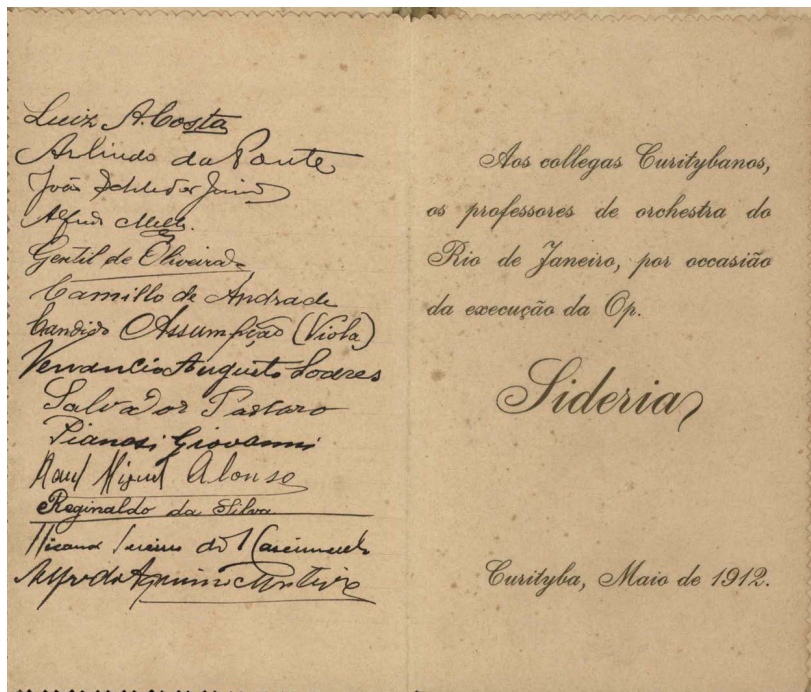 Luiz A. Costa
Arlindo da Ponte
João
Alfredo
Gentil de Oliveira
Camillo de Andrade
Candido Assumpção (Viola)
Venancio Augusto Soares
Salvador
Pianasi Giovanni
Raul Miguel Alonso
Reginaldo da Silva
do Nascimento
Alfredo Aquino Monteiro
Aos collegas Curitybanos,
os professores de orchestra do
Rio de Janeiro, por occasião
da execução da Op.
Sideria
Curityba, Maio de 1912.